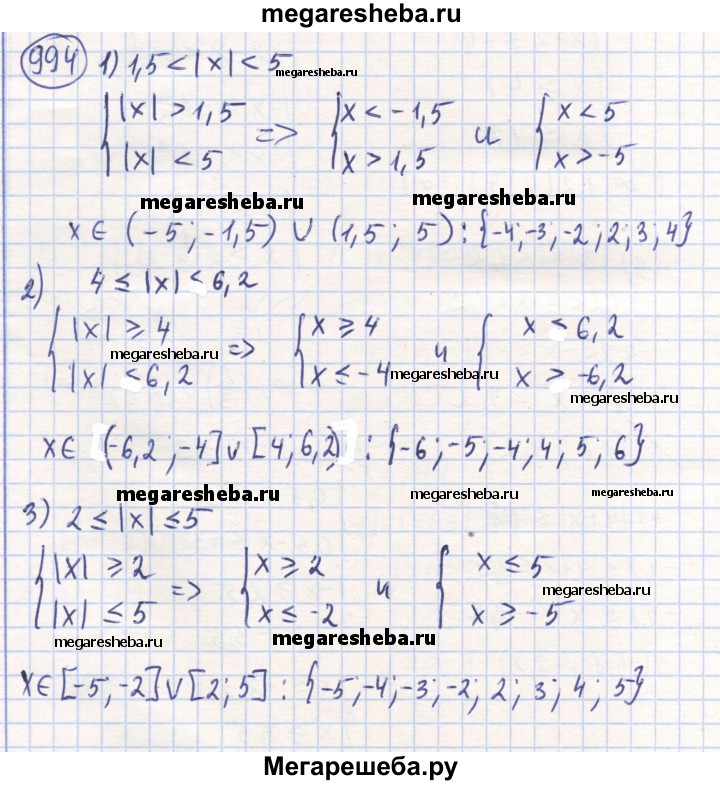 megaresheba.ru
994 1) 1,5 < |x| < 5
megaresheba.ru
{ |x| > 1,5 => { x < -1,5 и { x < 5
{ |x| < 5 { x > 1,5 { x > -5
megaresheba.ru megaresheba.ru
x ∈ (-5; -1,5) ∪ (1,5; 5) : {-4; -3; -2; 2; 3; 4}
2) 4 ≤ |x| < 6,2
{ |x| ≥ 4 => { x ≥ 4 и { x < 6,2
megaresheba.ru
{ |x| < 6,2 { x ≤ -4 { x > -6,2
megaresheba.ru
megaresheba.ru
x ∈ (-6,2; -4] ∪ [4; 6,2) : {-6; -5; -4; 4; 5; 6}
megaresheba.ru megaresheba.ru megaresheba.ru
3) 2 ≤ |x| ≤ 5
{ |x| ≥ 2 => { x ≥ 2 и { x ≤ 5
megaresheba.ru
{ |x| ≤ 5 { x ≤ -2 { x ≥ -5
megaresheba.ru megaresheba.ru
x ∈ [-5; -2] ∪ [2; 5] : {-5; -4; -3; -2; 2; 3; 4; 5}
Мегарешеба.ру